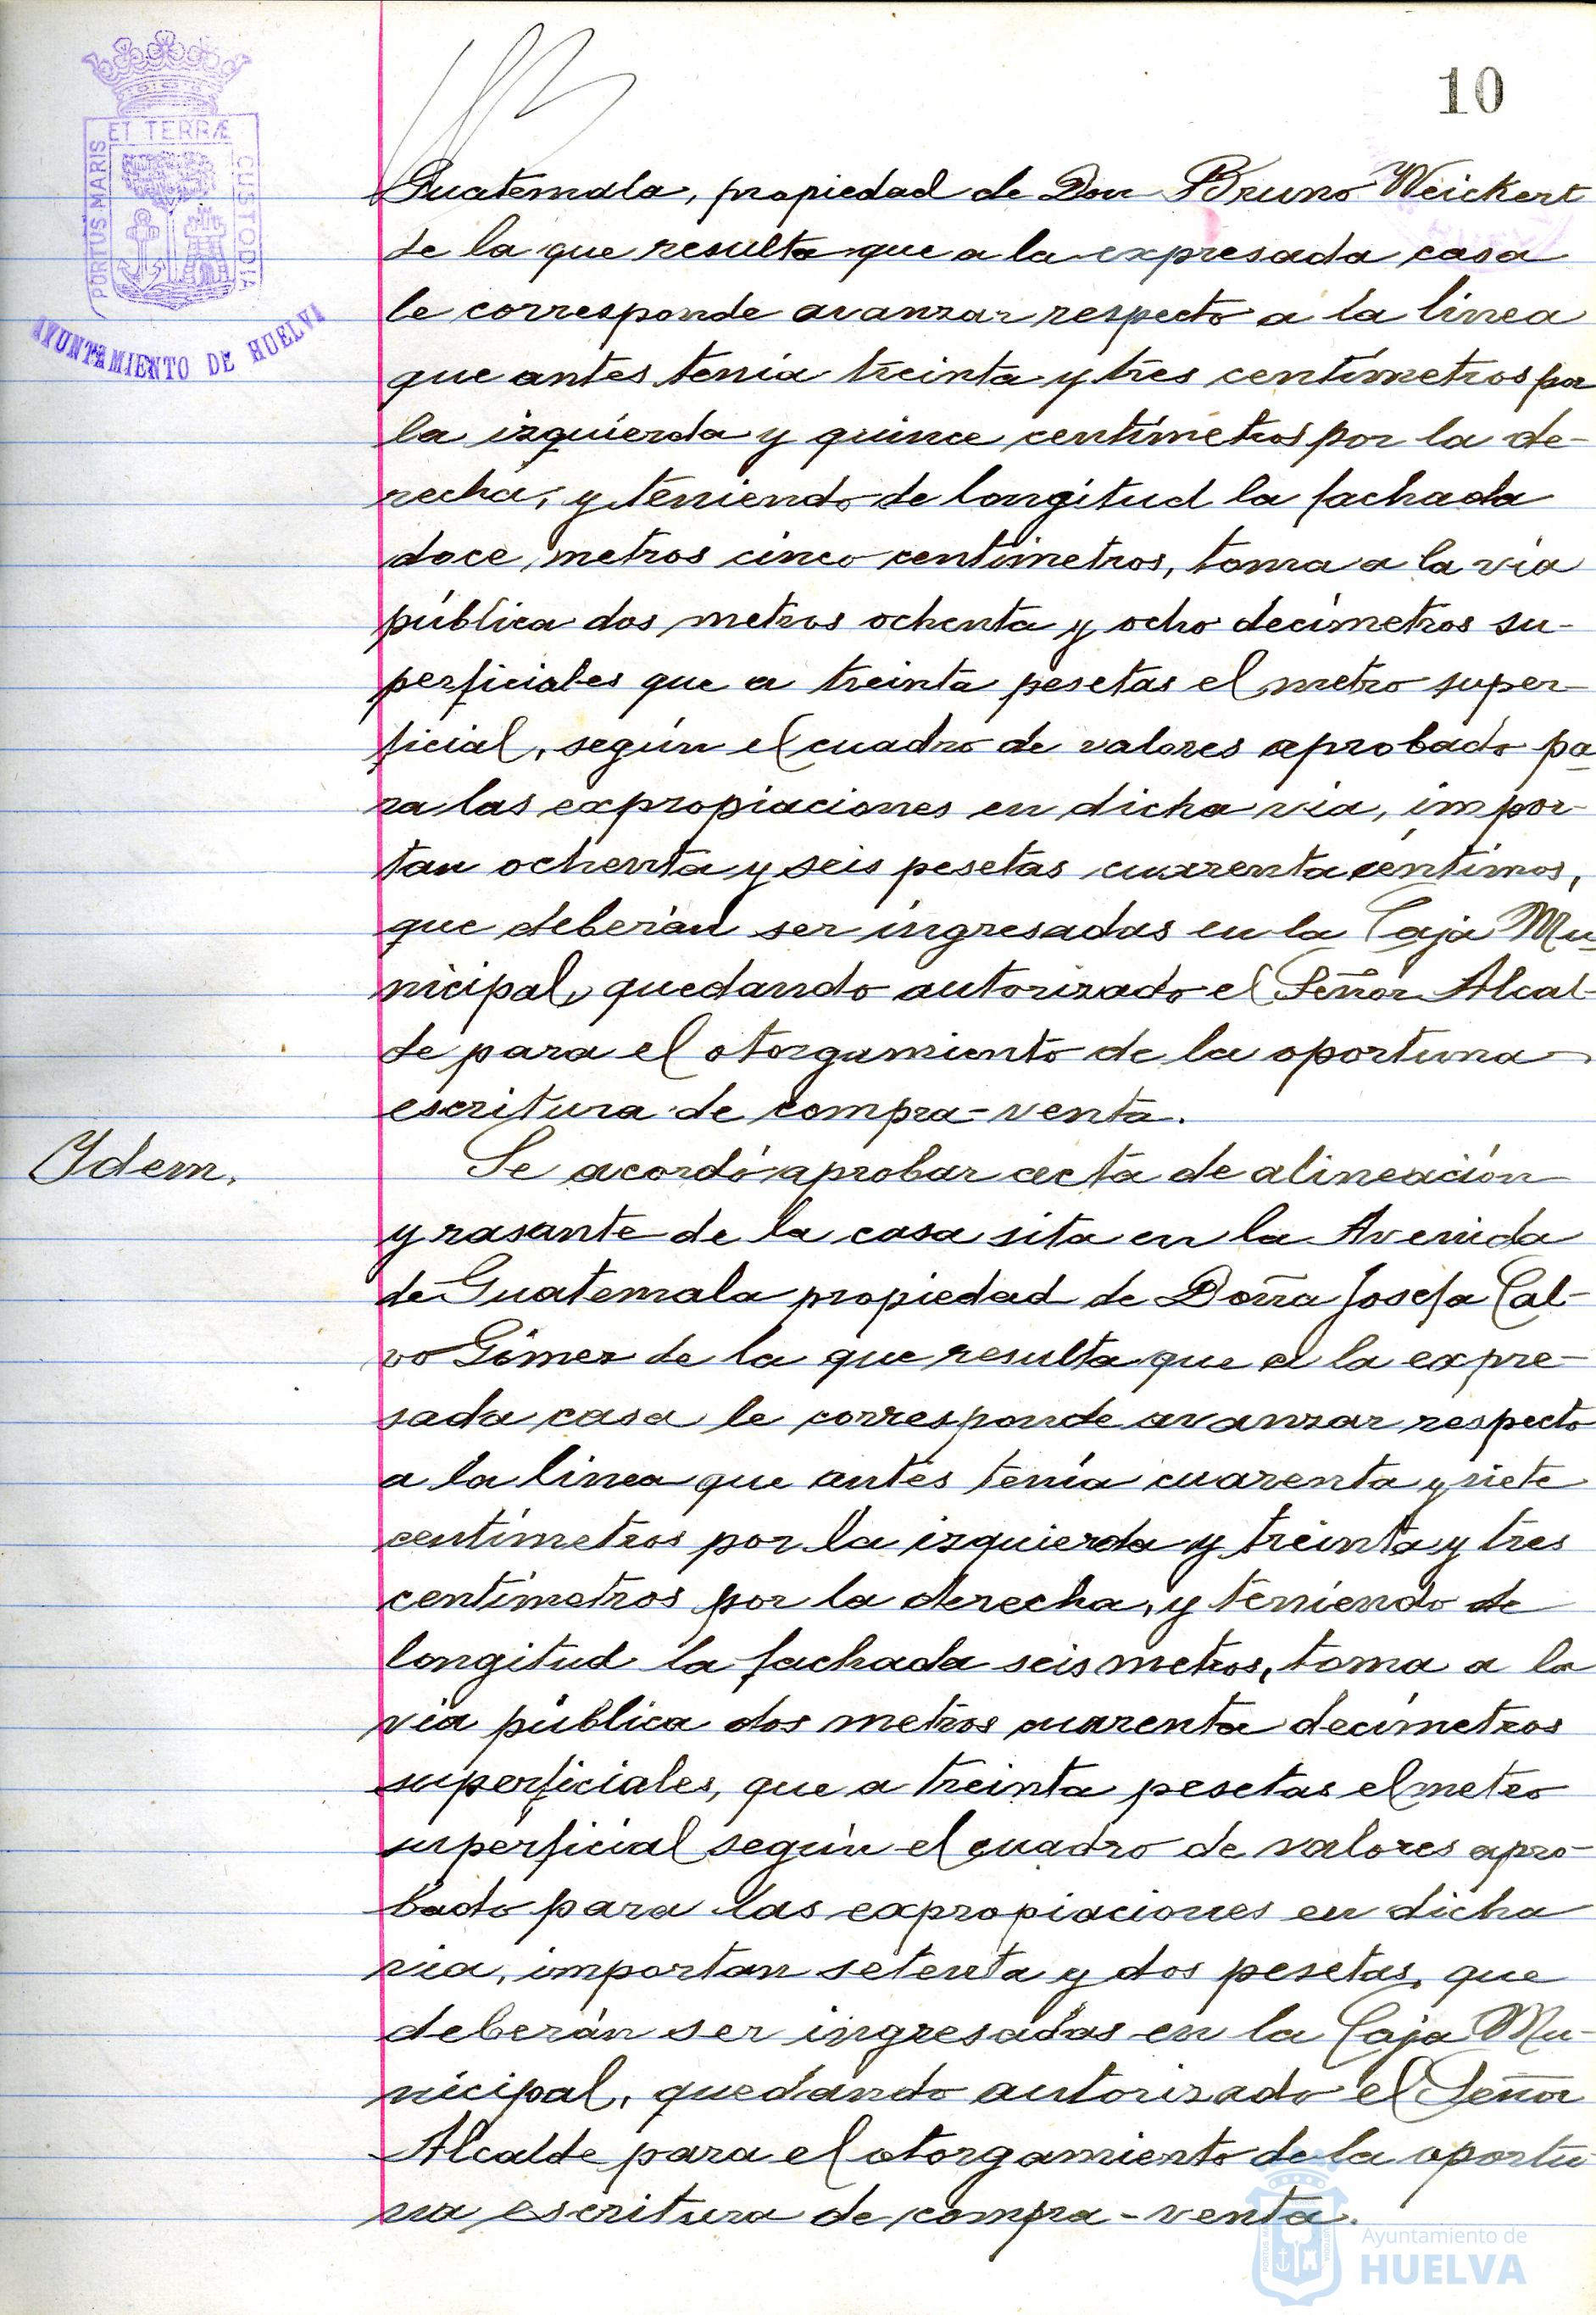 10
ET TERRÆ
PORTUS MARIS
CUSTODIA
AYUNTAMIENTO DE HUELVA
Guatemala, propiedad de Don Bruno Weickert
de la que resulta que a la expresada casa
le corresponde avanzar respecto a la linea
que antes tenía treinta y tres centímetros por
la izquierda y quince centímetros por la de-
recha, y teniendo de longitud la fachada
doce metros cinco centímetros, toma a la vía
pública dos metros ochenta y ocho decímetros su-
perficiales que a treinta pesetas el metro super-
ficial, según el cuadro de valores aprobado pa
ra las expropiaciones en dicha vía, impor-
tan ochenta y seis pesetas cuarenta céntimos,
que deberán ser ingresadas en la Caja Mu-
nicipal, quedando autorizado el Señor Alcal-
de para el otorgamiento de la oportuna
escritura de compra-venta.
Ydem.
Se acordó aprobar acta de alineación
y rasante de la casa sita en la Avenida
de Guatemala propiedad de Doña Josefa Cal-
vo Gómez de la que resulta que a la expre-
sada casa le corresponde avanzar respecto
a la linea que antes tenía cuarenta y siete
centímetros por la izquierda y treinta y tres
centímetros por la derecha, y teniendo de
longitud la fachada seis metros, toma a la
vía pública dos metros cuarenta decímetros
superficiales, que a treinta pesetas el metro
superficial según el cuadro de valores apro-
bado para las expropiaciones en dicha
vía, importan setenta y dos pesetas, que
deberán ser ingresadas en la Caja Mu-
nicipal, quedando autorizado el Señor
Alcalde para el otorgamiento de la oportu-
na escritura de compra-venta.
Ayuntamiento de
HUELVA